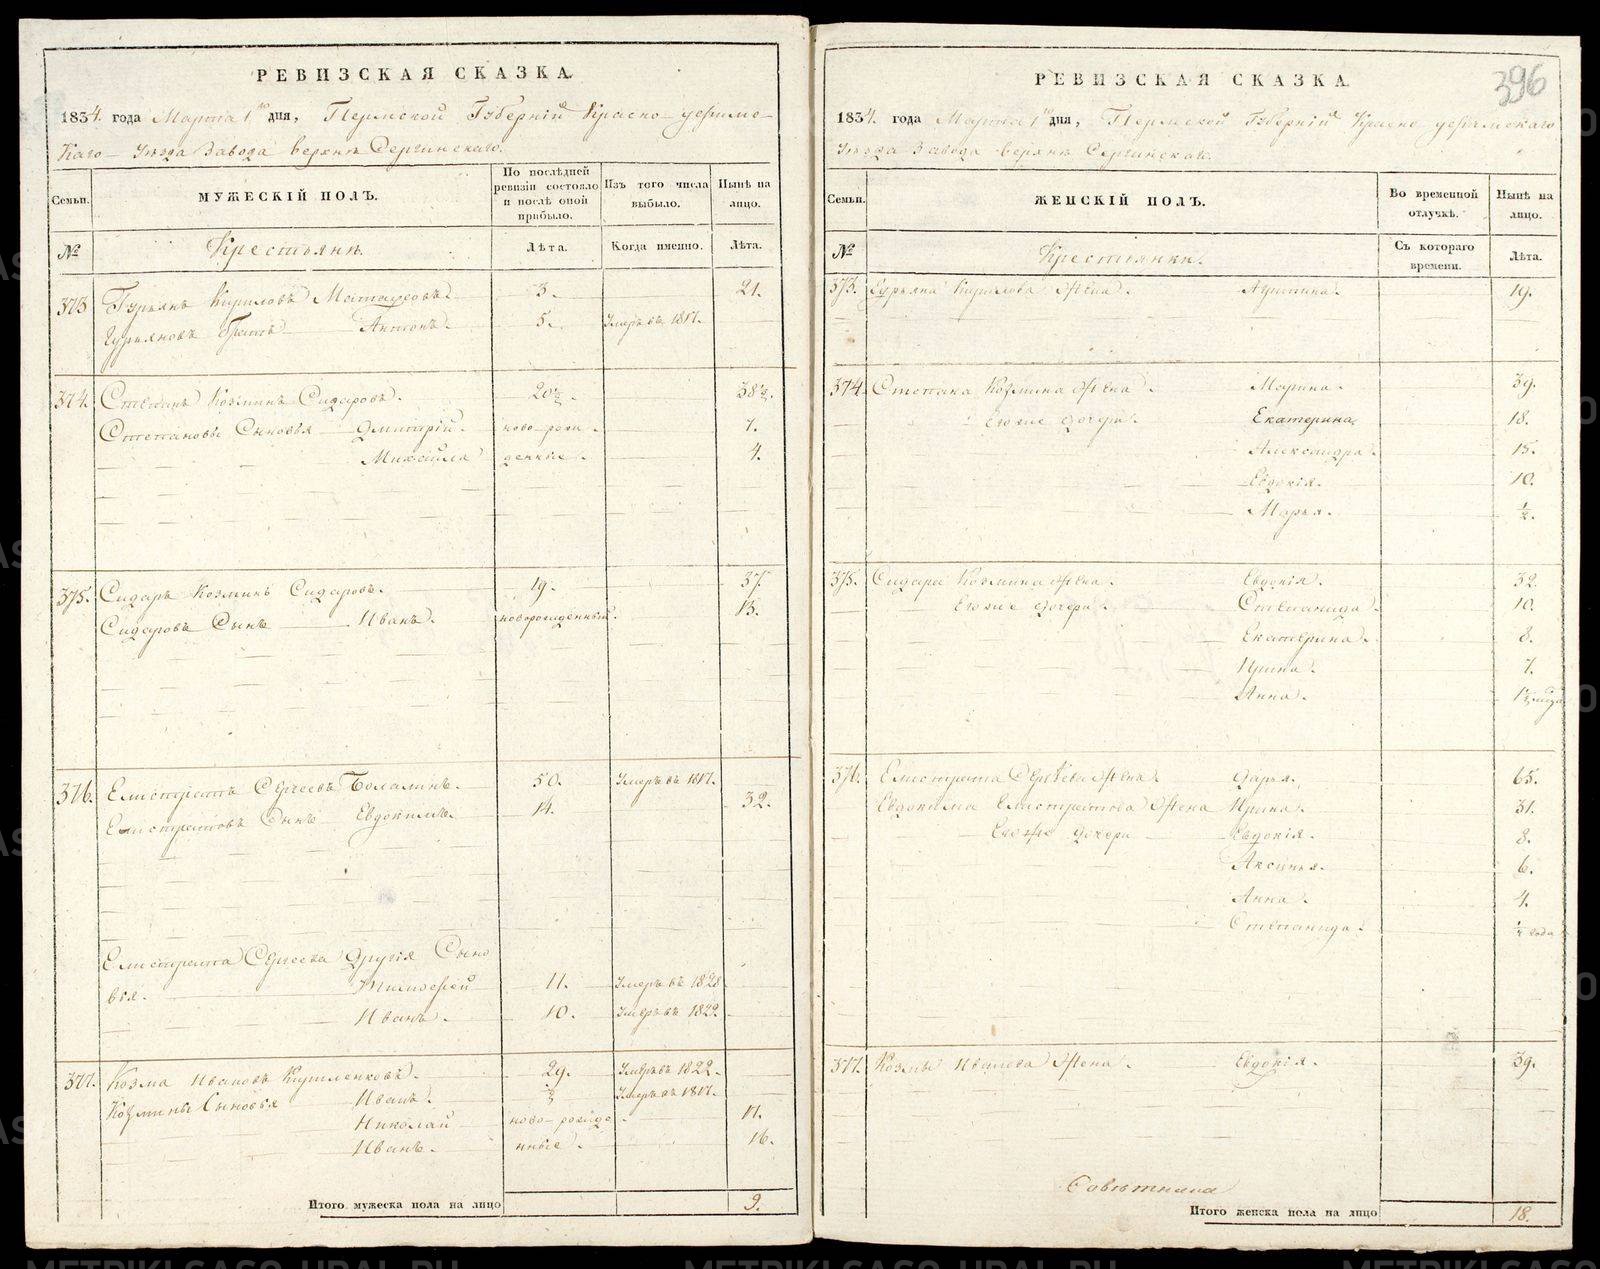 РЕВИЗСКАЯ СКАЗКА.
1834. года Марта 1го дня, Пермской Губерніи Красно-уфимс-
каго Уѣзда Завода Верхнѣ Сергинскаго.
Семьи.
МУЖЕСКІЙ ПОЛЪ.
По послѣдней ревизіи состояло и послѣ оной прибыло.
Изъ того числа выбыло.
Нынѣ на лицо.
№
Крестьянѣ.
Лѣта.
Когда именно.
Лѣта.
373 Гурьянъ Кириловъ 3. 21.
Гурьяновъ Братъ Антонъ. 5. Умеръ въ 1817.
374. Степанъ Козминъ Сидаровъ. 20½. 38½.
Степановы Сыновья Дмитрій. ново-рож- 7.
Михайла денные. 4.
375. Сидаръ Козминъ Сидаровъ. 19. 37.
Сидаровъ Сынъ Иванъ. новорожденный. 13.
376. Елистратъ Сергеевъ 50. Умеръ въ 1817.
Елистратовъ Сынъ Евдокимъ. 14. 32.
Елистрата Сергеева Другія Сыно
вья. Тимофей 11. Умеръ въ 1828
Иванъ. 10. Умеръ въ 1829.
377. Козма Ивановъ 29. Умеръ въ 1822.
Козмины Сыновья Иванъ. Умеръ въ 1817.
Николай ново-рожде 17.
Иванъ. нные. 16.
Итого мужеска пола на лицо 9.
396
РЕВИЗСКАЯ СКАЗКА.
1834. года Марта 1го дня, Пермской Губерніи Красно уфимскаго
Уѣзда Завода Верхнѣ Сергинскаго.
Семьи.
ЖЕНСКІЙ ПОЛЪ.
Во временной отлучкѣ.
Нынѣ на лицо.
№
Крестьянки.
Съ котораго времени.
Лѣта.
373. Гурьяна Кирилова Жена. 19.
374. Степана Козмина Жена. Марина. 39.
Екатерина. 18.
Александра. 15.
Евдокія. 10.
Марья. ½.
375. Сидара Козмина Жена. Евдокія. 32.
Степанида. 10.
Екатерина. 8.
Ирина. 7.
Анна. 1½ года
376. Елистрата Сергеева Жена. Дарья. 65.
Евдокима Елистратова Жена Ирина. 31.
Его же дочери Евдокія. 8.
Аксинья. 6.
Анна. 4.
Степанида. ½ года
377. Козмы Иванова Жена. Евдокія. 39.
Совѣтника
Итого женска пола на лицо 18.